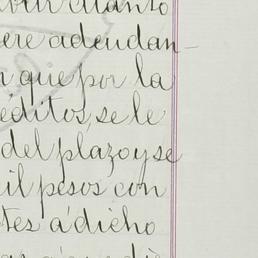 cuanto
ere adeudan-
que por la
éditos, se le
del plazo y se
il pesos con
tes á dicho